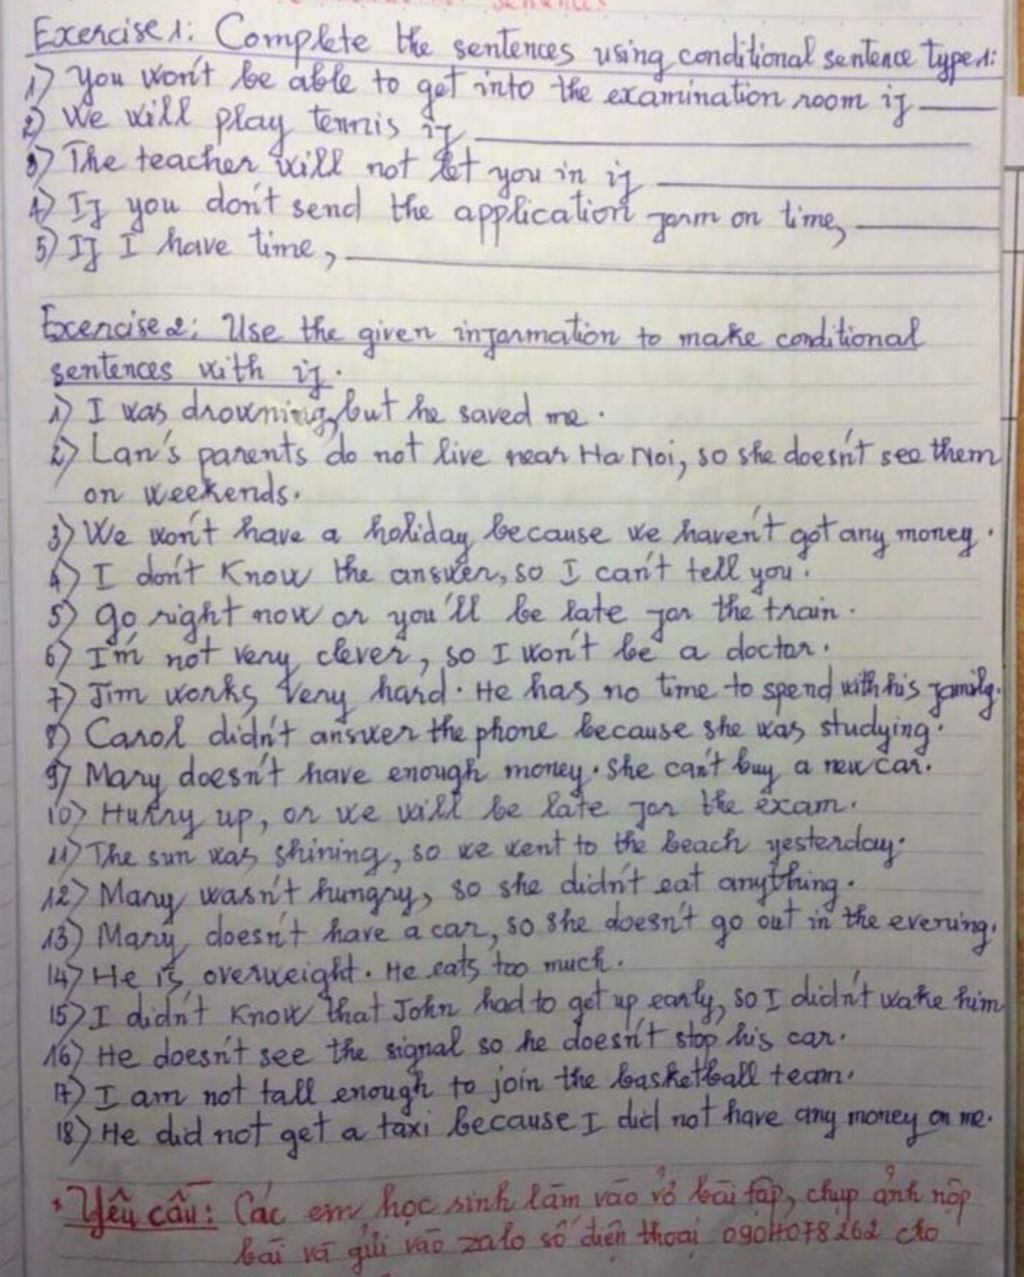 sentences
Exercise 1: Complete the sentences using conditional sentence type 1:
1) You won't be able to get into the examination room if ______
2) We will play tennis if ______
3) The teacher will not let you in if ______
4) If you don't send the application form on time, ______
5) If I have time, ______
Exercise 2: Use the given information to make conditional
sentences with if.
1) I was drowning, but he saved me.
2) Lan's parents do not live near Ha Noi, so she doesn't see them
on weekends.
3) We won't have a holiday because we haven't got any money.
4) I don't know the answer, so I can't tell you.
5) Go right now or you'll be late for the train.
6) I'm not very clever, so I won't be a doctor.
7) Jim works very hard. He has no time to spend with his family.
8) Carol didn't answer the phone because she was studying.
9) Mary doesn't have enough money. She can't buy a new car.
10) Hurry up, or we will be late for the exam.
11) The sun was shining, so we went to the beach yesterday.
12) Mary wasn't hungry, so she didn't eat anything.
13) Mary doesn't have a car, so she doesn't go out in the evening.
14) He is overweight. He eats too much.
15) I didn't know that John had to get up early, so I didn't wake him
16) He doesn't see the signal so he doesn't stop his car.
17) I am not tall enough to join the basketball team.
18) He did not get a taxi because I did not have any money on me.
* Yêu cầu: Các em học sinh làm vào vở bài tập, chụp ảnh nộp
bài và gửi vào zalo số điện thoại 0904078262 cho